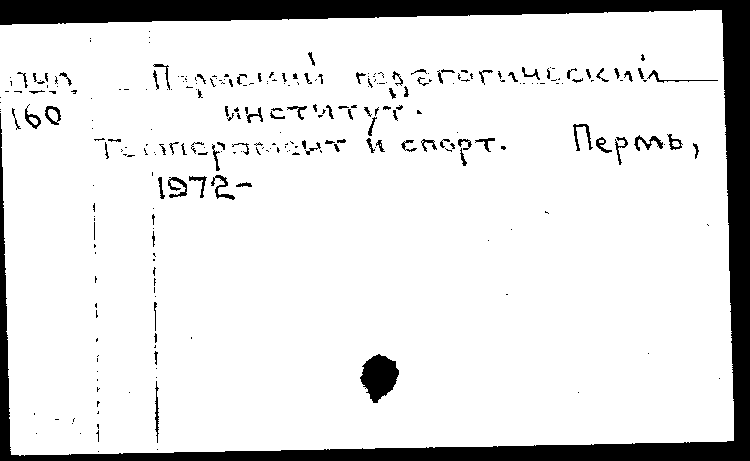 Пермский педагогический
160 институт.
Темперамент и спорт. Пермь,
1972-